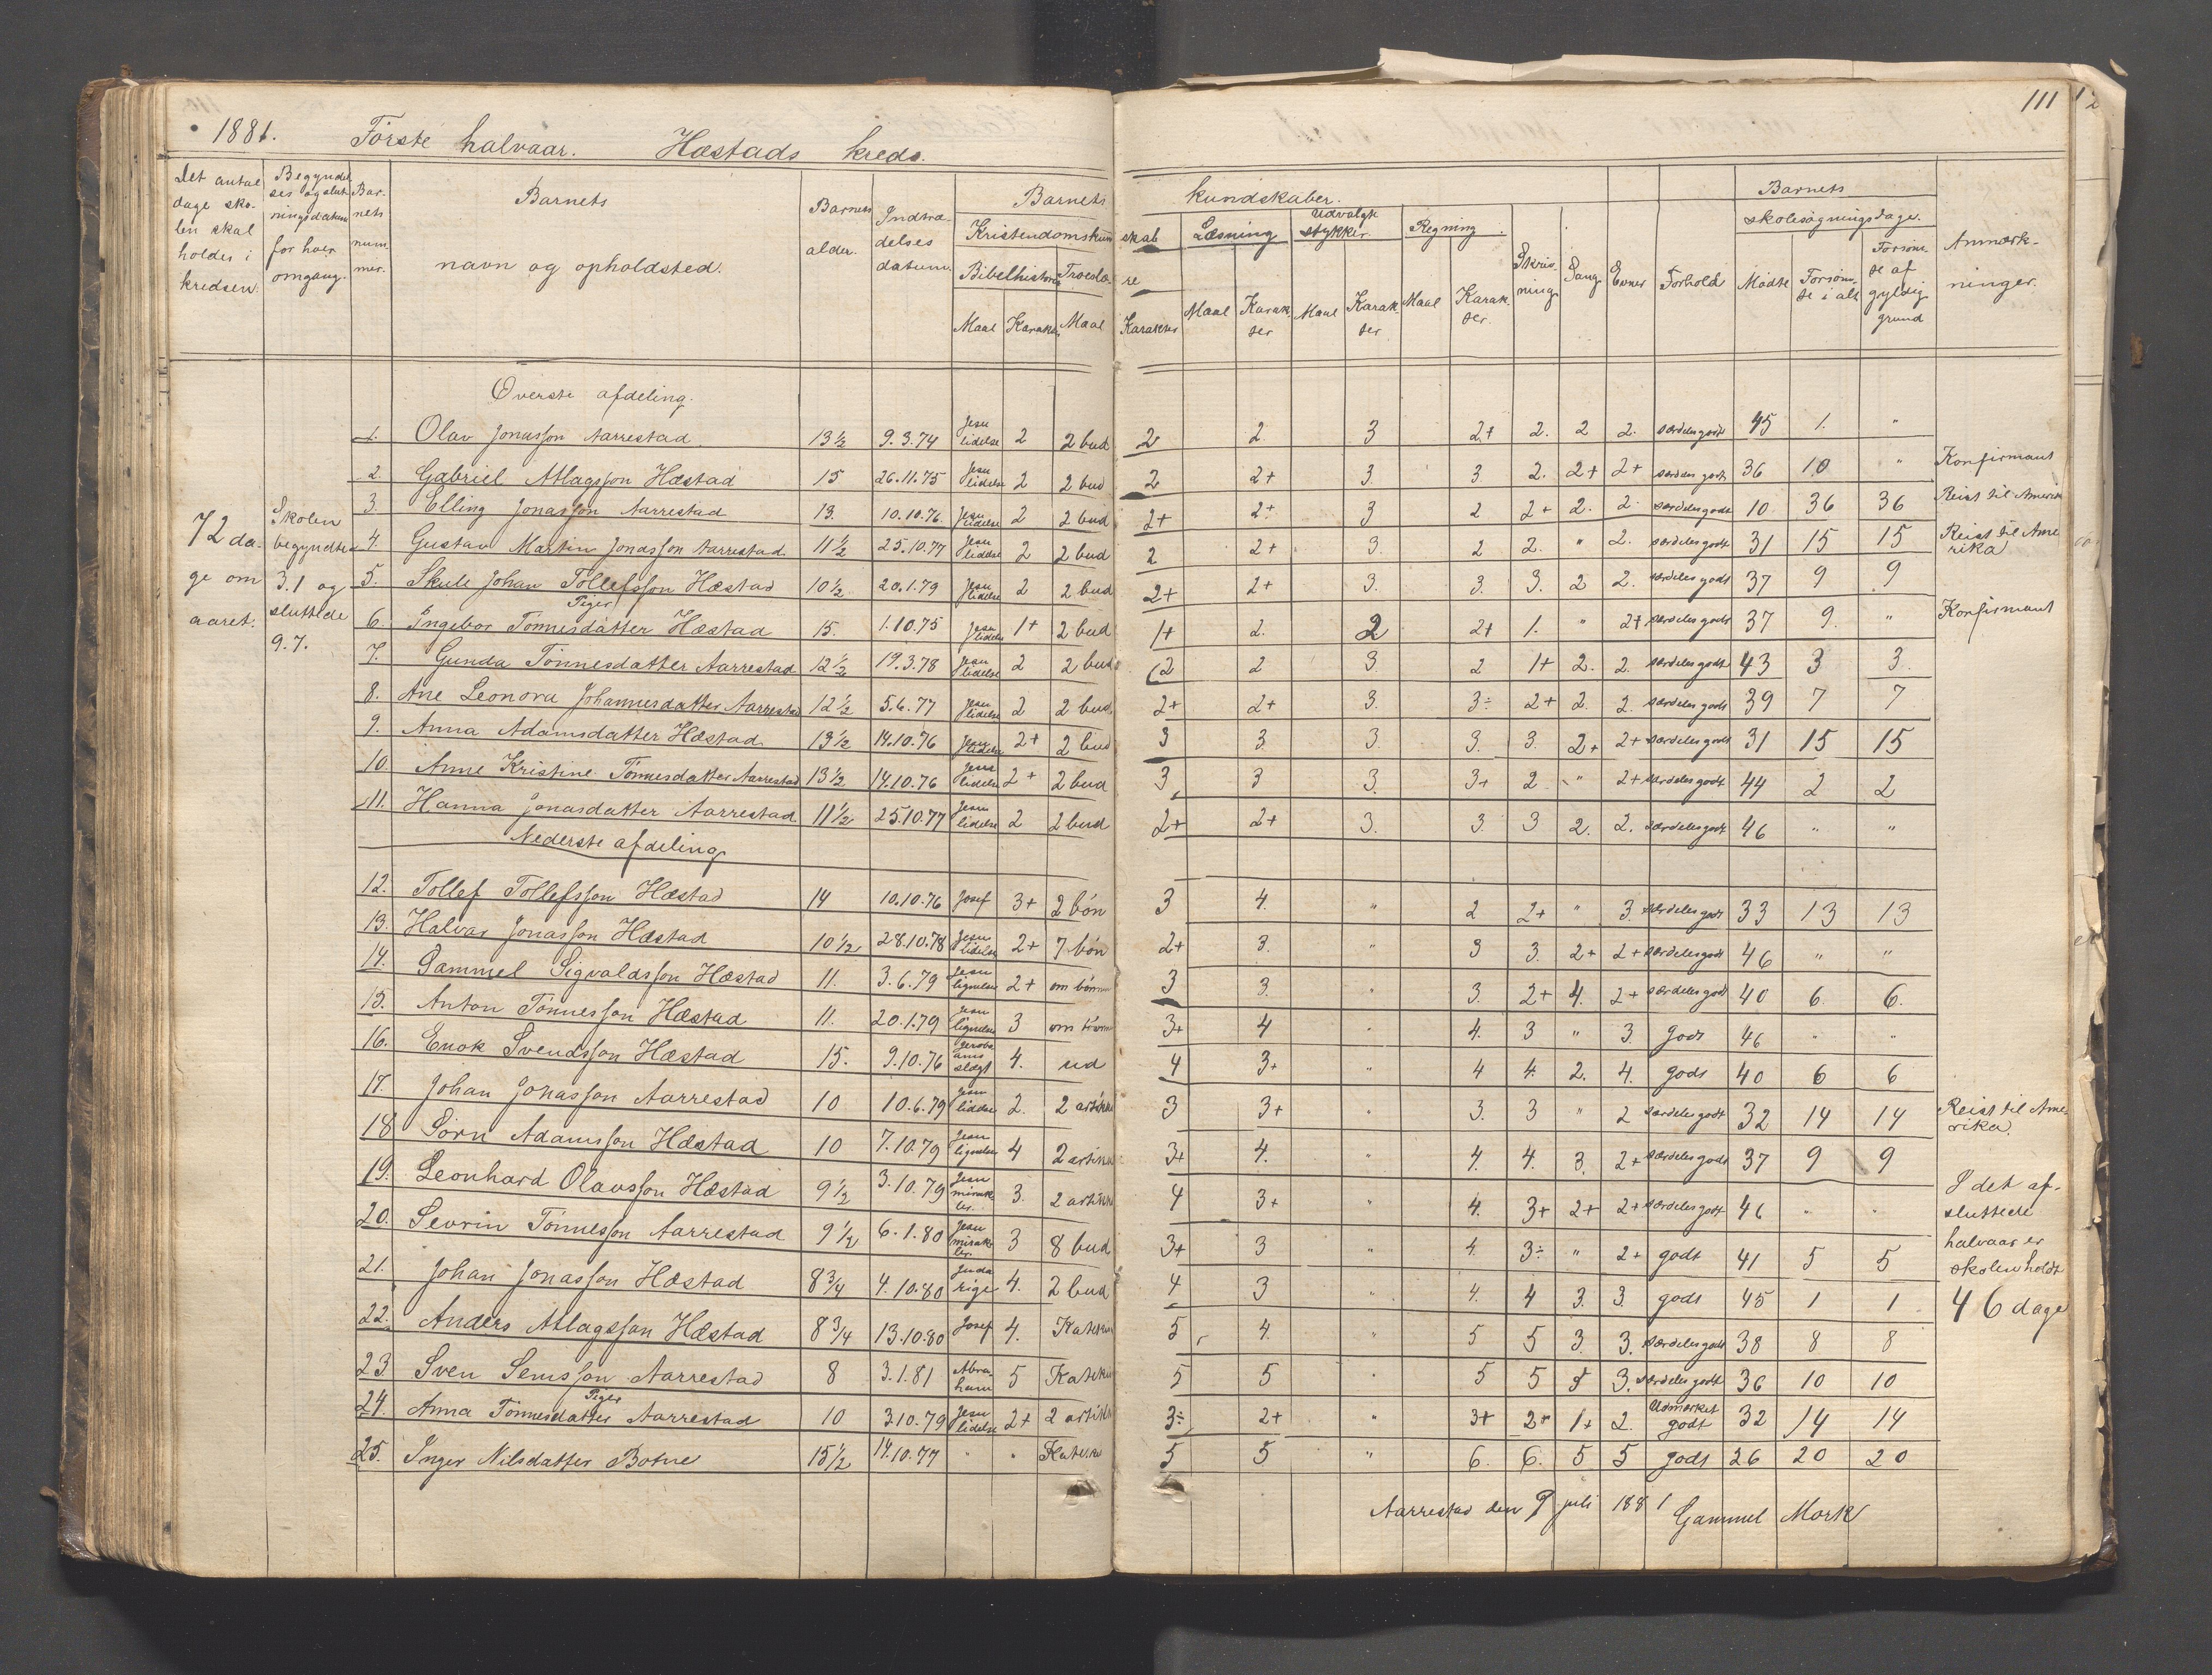 111
1881. Første halvaar. Hæstads kreds.
Det antal dage skolen skal holdes i kredsen.
Begyndelses og slutningsdatum for hver omgang.
Barnets nummer.
Barnets navn og opholdsted.
Barnets alder.
Indtrædelses datum.
Barnets kundskaber.
Kristendomskundskab
Bibelhistorie Troeslære
Maal Karakter Maal Karakter
Læsning Maal Karakter
Udvalgte stykker. Maal Karakter
Regning. Maal Karakter.
Skrivning Sang Evner Forhold
Barnets skolesøgningsdage.
Mødte Forsømte i alt Forsømte af gyldig grund
Anmærkninger.
72 dage om aaret.
Skolen begyndte 3.1 og sluttede 9.7.
Øverste afdeling.
1. Olav Jonasson Aarrestad 13½ 9.3.74 Jesu lidelse 2 2 bud 2 2 3 2+ 2. 2 2. særdeles godt 45 1. "
2. Gabriel Atlagsson Hæstad 15 26.11.75 Jesu lidelse 2 2 bud 2 2+ 3. 3 2. 2+ 2+ særdeles godt 36 10 " Konfirmant
3. Elling Jonasson Aarrestad 13. 10.10.76. Jesu lidelse 2 2 bud 2+ 2+ 3 2 2+ 2. 2. særdeles godt 10 36 36 Reist til Amerika
4. Gustav Martin Jonasson Aarrestad. 11½ 25.10.77 Jesu lidelse 2 2 bud 2 2+ 3. 2 2. " 2. særdeles godt 31 15 15 Reist til Amerika
5. Skule Johan Tollefsson Hæstad 10½ 20.1.79 Jesu lidelse 2 2 bud 2+ 2+ 3. 3. 3. 2 2. særdeles godt 37 9 9
Piger
6. Ingebor Tønnesdatter Hæstad 15. 1.10.75 Jesu lidelse 1+ 2 bud 1+ 2. 2 2+ 1. " 2+ særdeles godt 37 9. " Konfirmant
7. Gunda Tønnesdatter Aarrestad 12½ 19.3.78 Jesu lidelse 2 2 bud 2 2 3. 2 1+ 2. 2. særdeles godt 43 3 3.
8. Ane Leonora Johannesdatter Aarrestad 12½ 5.6.77 Jesu lidelse 2 2 bud 2+ 2+ 3. 3÷ 2+ 2. 2. særdeles godt 39 7 7
9. Anna Adamsdatter Hæstad 13½ 14.10.76 Jesu lidelse 2+ 2 bud 3 3. 3. 3. 3. 2+ 2+ særdeles godt 31 15 15
10. Anne Kristine Tønnesdatter Aarrestad 13½ 14.10.76 Jesu lidelse 2+ 2 bud 3 3 3. 3+ 2 " 2+ særdeles godt 44 2 2
11. Hanna Jonasdatter Aarrestad 11½ 25.10.77 Jesu lidelse 2 2 bud 2+ 2+ 3. 3. 3 2. 2. særdeles godt 46 " "
Nederste afdeling
12. Tollef Tollefsson Hæstad 14 10.10.76 Josef 3+ 2 bøn 3 4. " 2 2+ " 3. særdeles godt 33 13 13
13. Halvar Jonasson Hæstad 10½ 28.10.78 Jesu lidelse 2+ 7 bøn 2+ 3. " 3 3. 2+ 2+ særdeles godt 46 " "
14. Gammel Sigvaldsson Hæstad 11. 3.6.79 Jesu lignelse 2+ om bønnen 3 3. " 3. 2+ 4. 2+ særdeles godt 40 6. 6.
15. Anton Tønnesson Hæstad 11. 20.1.79 Jesu lignelse 3 om 3+ 4 " 4. 3 " 3. godt 46 " "
16. Enok Svendsson Hæstad 15. 9.10.76 Jeroboams slægt 4. ud 4 3+ " 4 4. 2. 4. godt 40 6 6
17. Johan Jonasson Aarrestad 10 10.6.79 Jesu lidelse 2. 2 artikkel 3 3+ " 3. 3 " 2 særdeles godt 32 14 14 Reist til Amerika.
18 Sørn Adamsson Hæstad 10 7.10.79 Jesu lignelse 4 2 artikkel 3+ 4. " 4. 4. 3. 2+ særdeles godt 37 9 9
19. Leonhard Olausson Hæstad 9½ 3.10.79 Jesu mirakler. 3. 2 artikkel 4 3+ " 4. 3+ 2+ 2+ særdeles godt 46 " "
20. Sevrin Tønnesson Aarrestad 9½ 6.1.80 Jesu mirakler. 3 8 bud 3+ 3 " 4. 3÷ " 2+ godt 41 5 5
21. Johan Jonasson Hæstad 8¾ 4.10.80 Juda rige 4. 2 bud 4 3 " 4. 4 3. 3. godt 45 1 1
22. Anders Atlagsson Hæstad 8¾ 13.10.80 Josef 4. 5 4. " 5 5 3. 3. særdeles godt 38 8 8
23. Sven Semsson Aarrestad 8 3.1.81 Abraham 5 5 5 " 5 5 5 3. særdeles godt 36 10 10
Piger
24. Anna Tønnesdatter Aarrestad 10 3.10.79 Jesu lidelse 2+ 2 artikkel 3÷ 2+ " 3+ 2+ 1+ 2. Udmærket godt 32 14 14
25. Inger Nilsdatter Botne 15½ 14.10.77 " " 5 5 " 6. 6. 5 5 godt 26 20 20
I det afsluttede halvaar er skolen holdt 46 dage
Aarrestad den 9 juli 1881 Gammel Mork